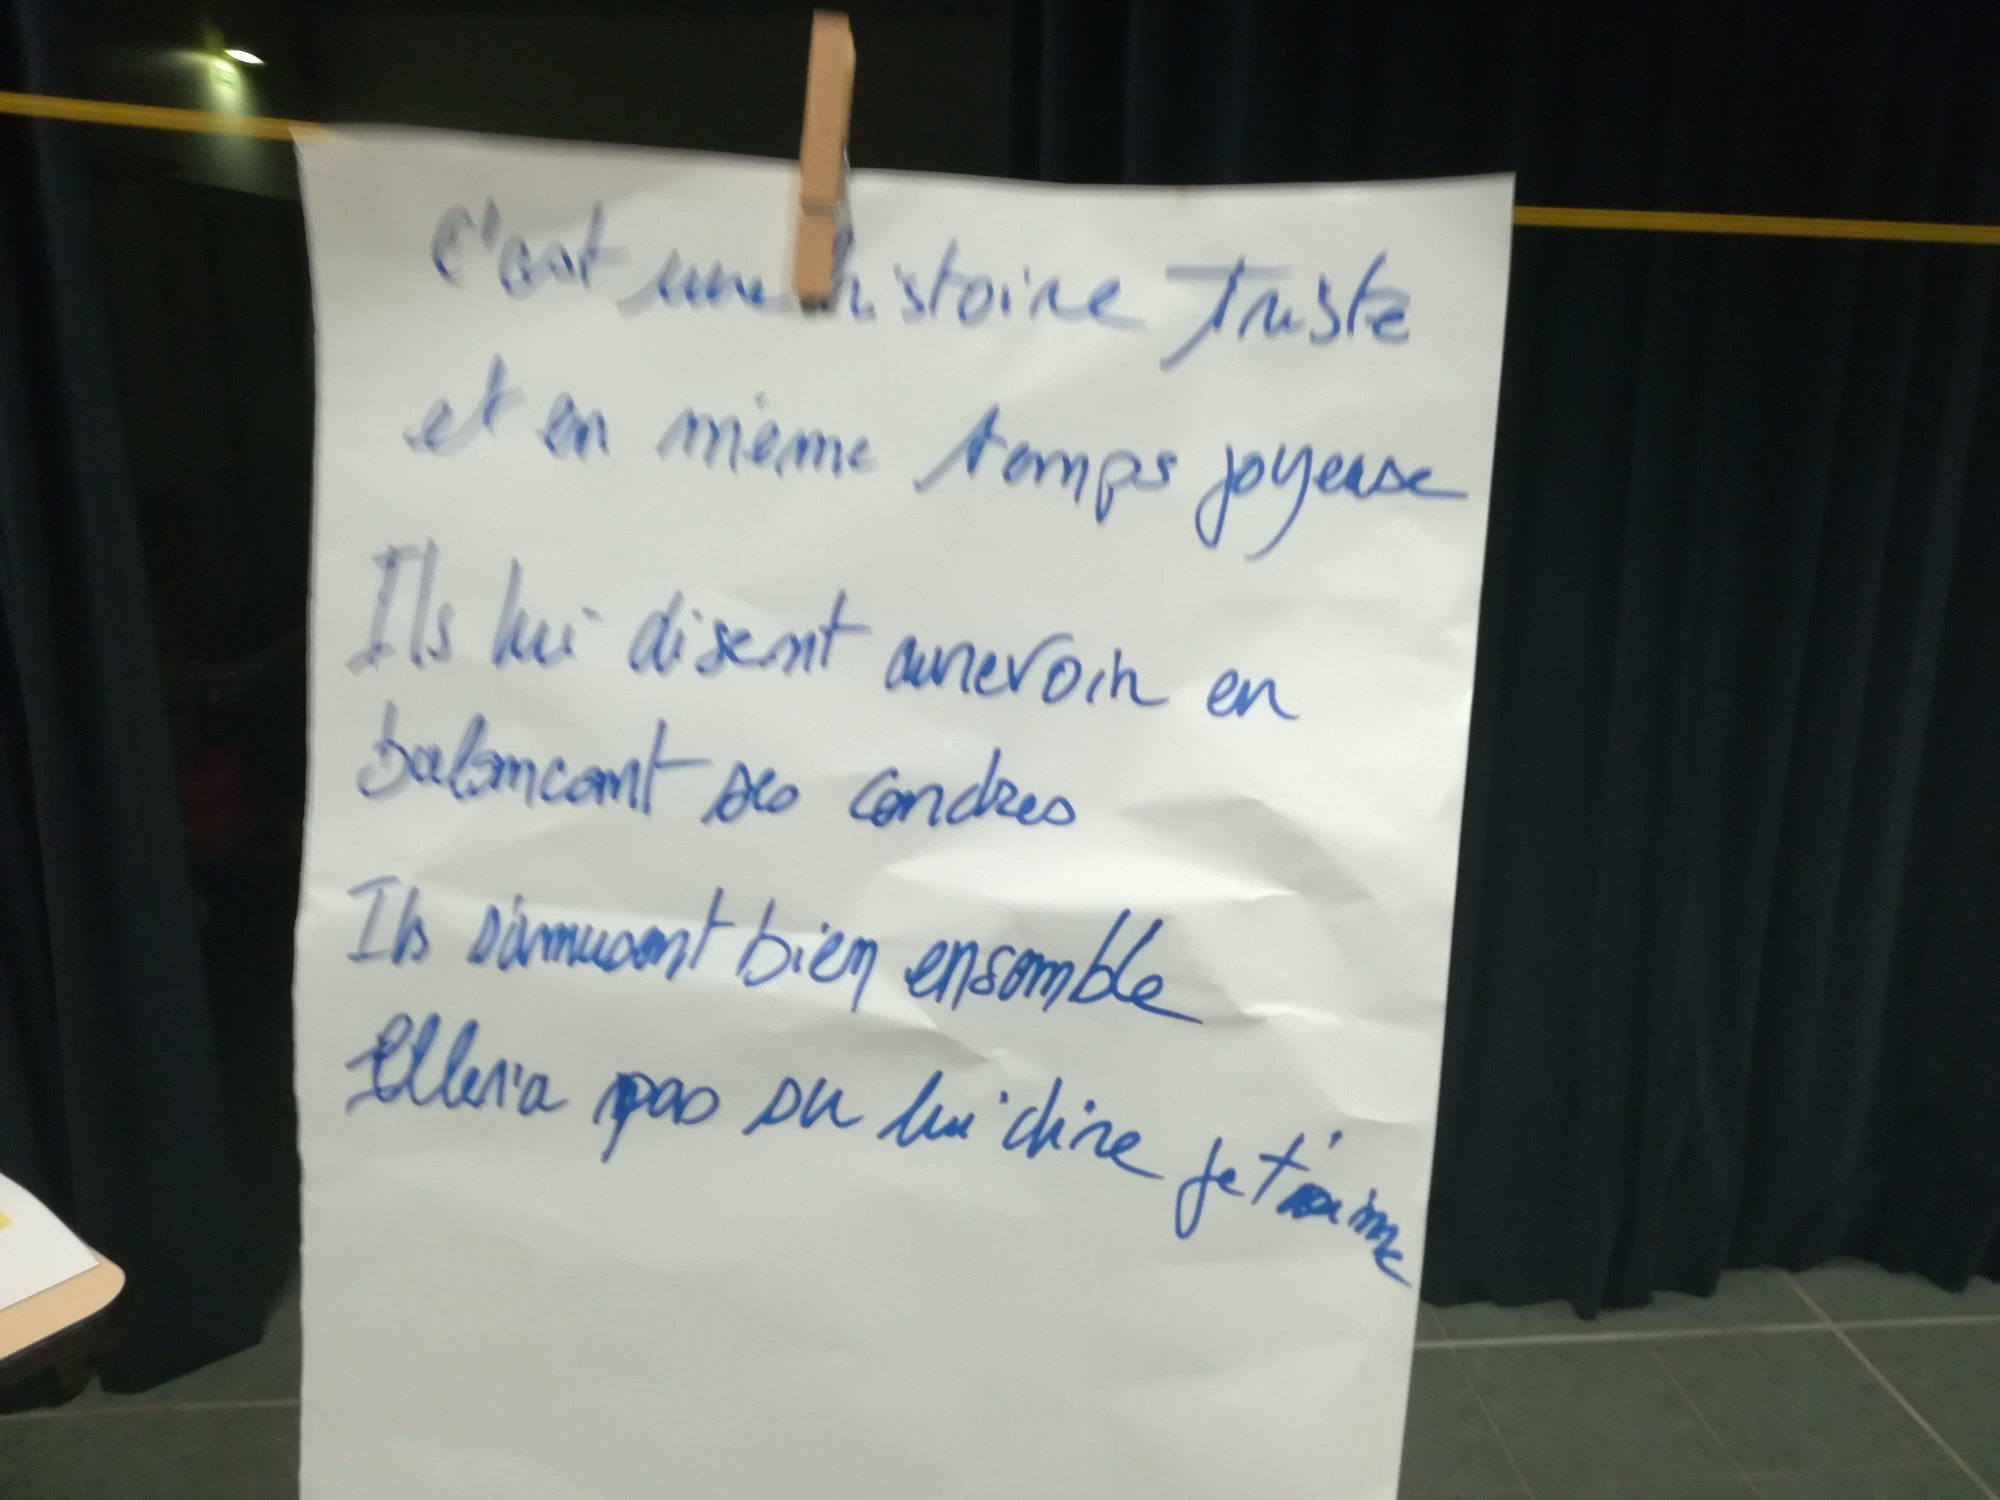 c'est une histoire Triste
et en même temps joyeuse
Ils lui disent aurevoir en
balancant ses cendres
Ils s'amusent bien ensemble
Elle n'a pas su lui dire je t'aime